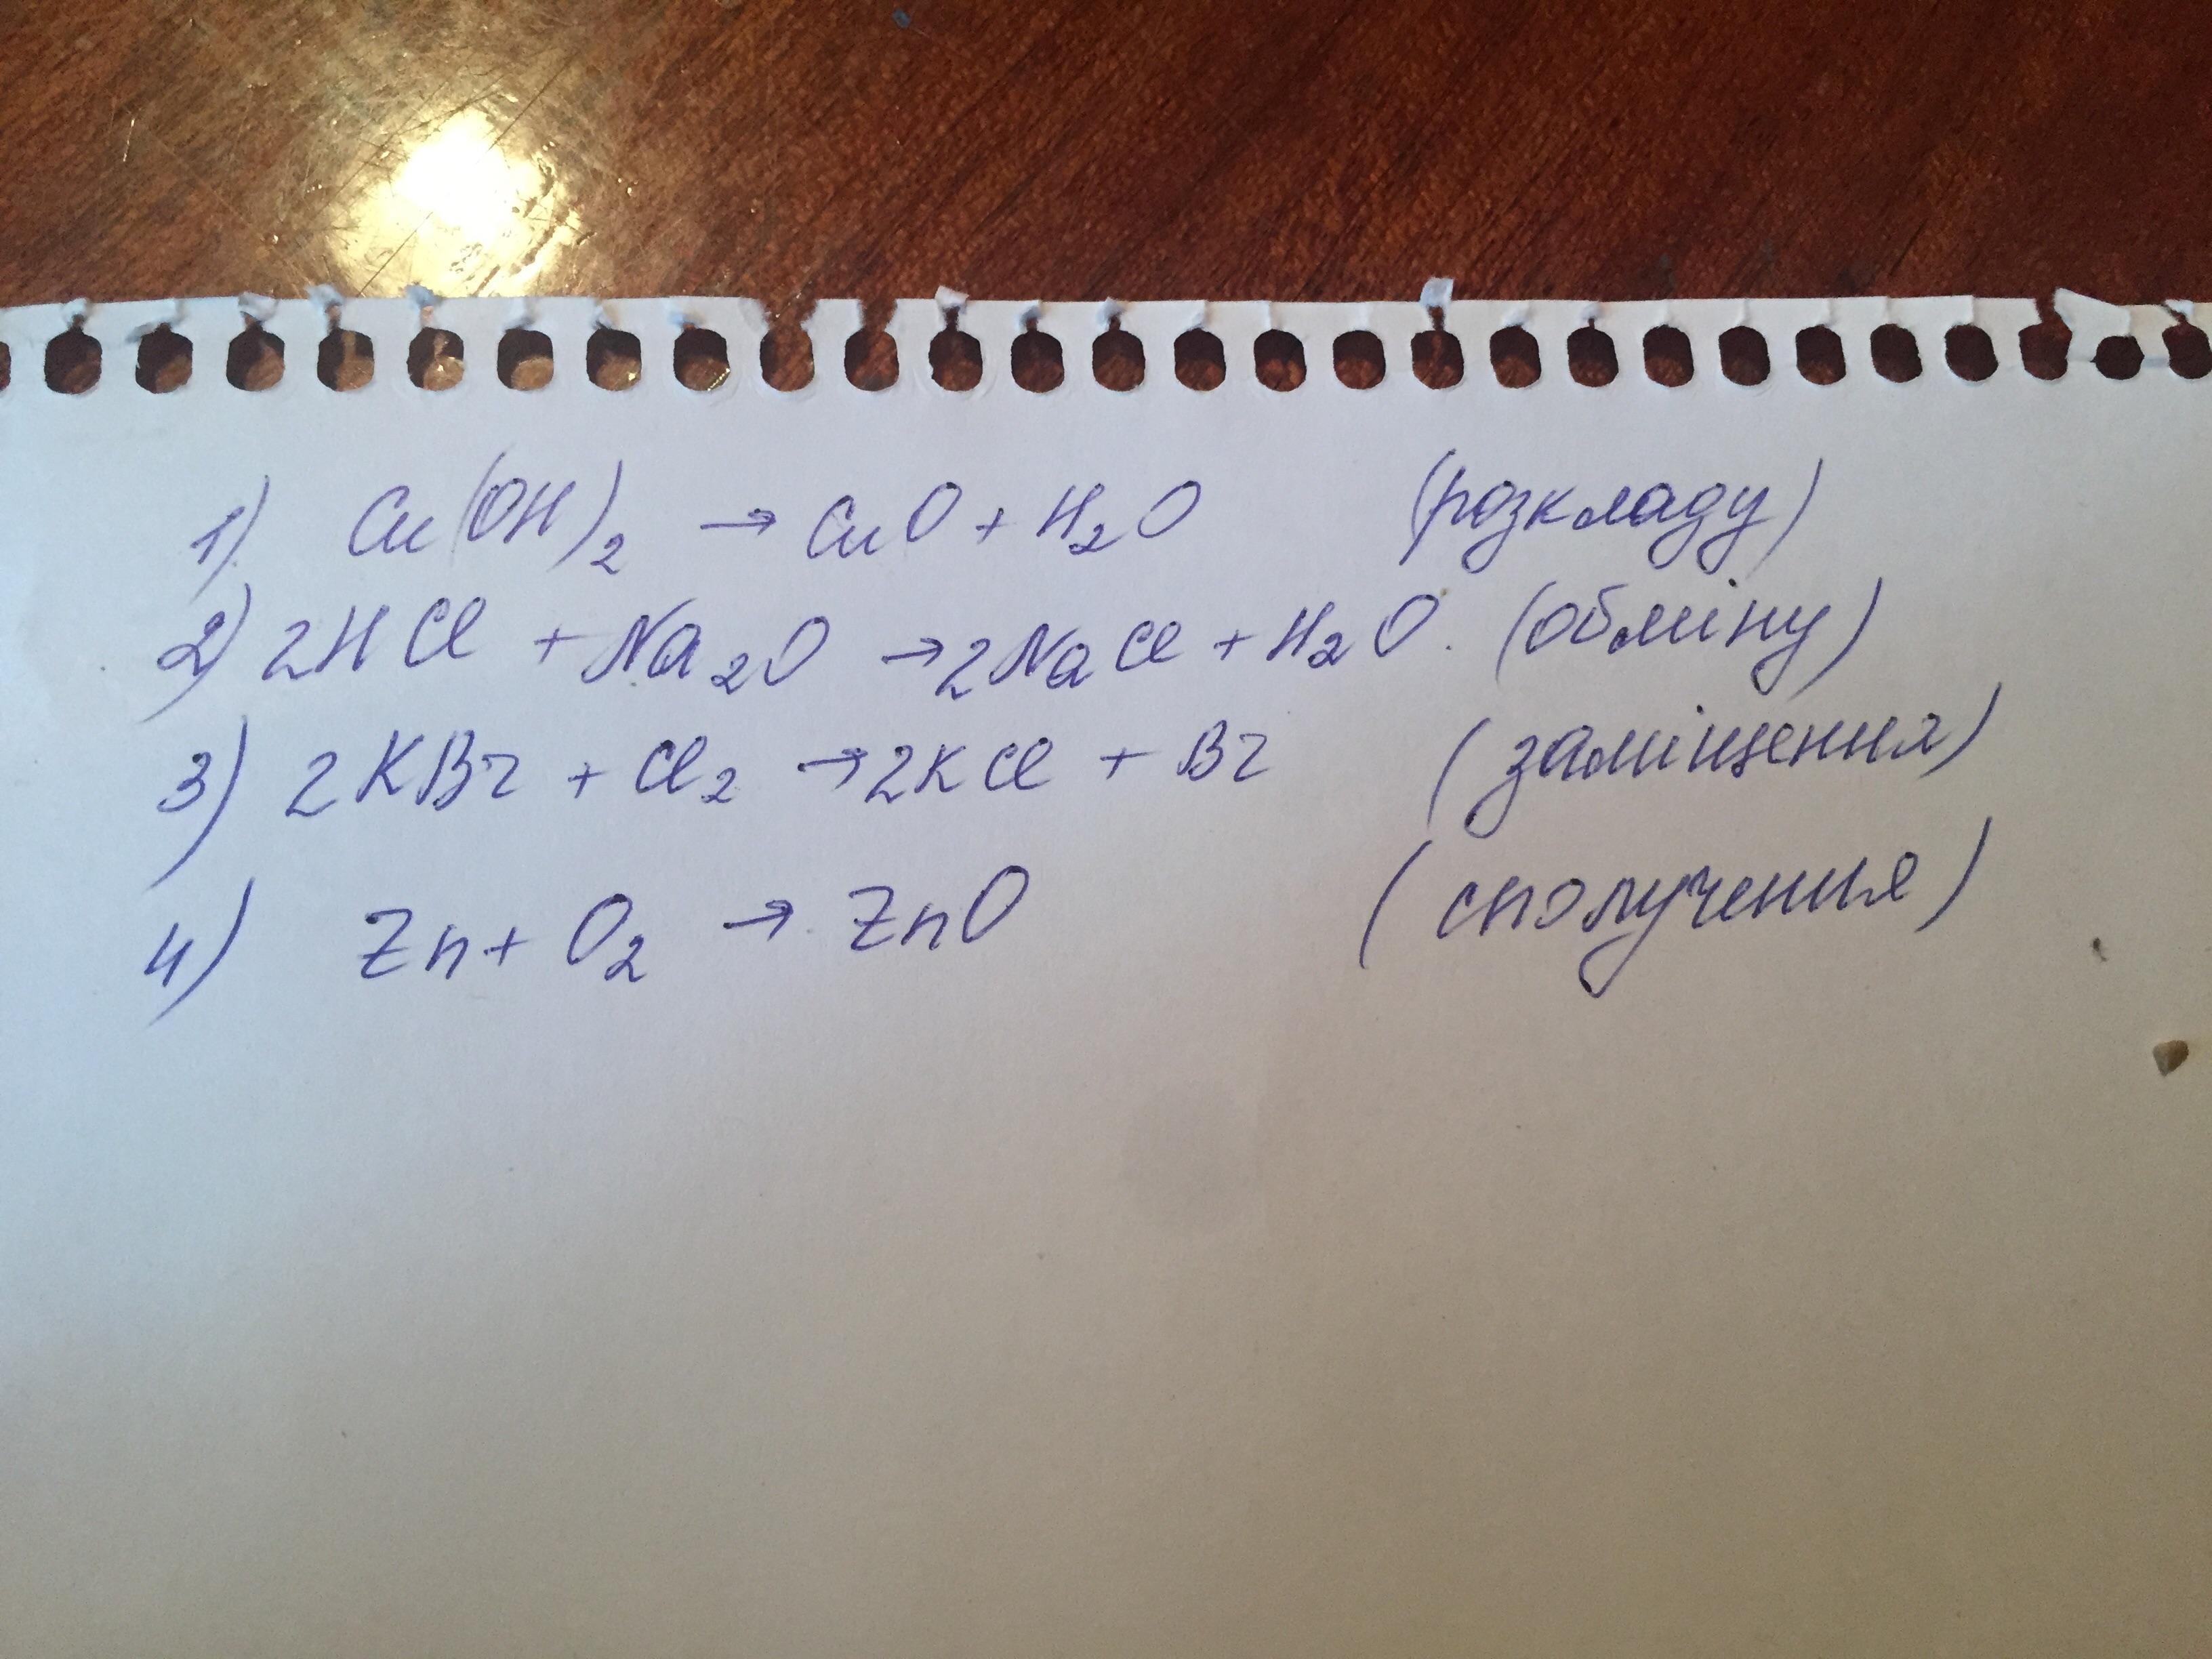 1) Cu(OH)₂ → CuO + H₂O (розкладу)
2) 2HCl + Na₂O → 2NaCl + H₂O. (обміну)
3) 2KBr + Cl₂ → 2KCl + Br (заміщення)
4) Zn + O₂ → ZnO (сполучення)